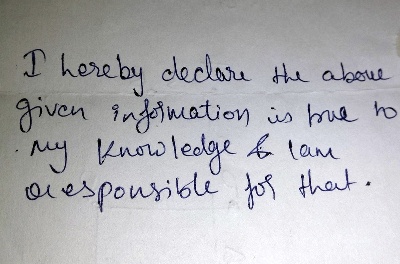 I hereby declare the above
given information is true to
my knowledge & I am
responsible for that.